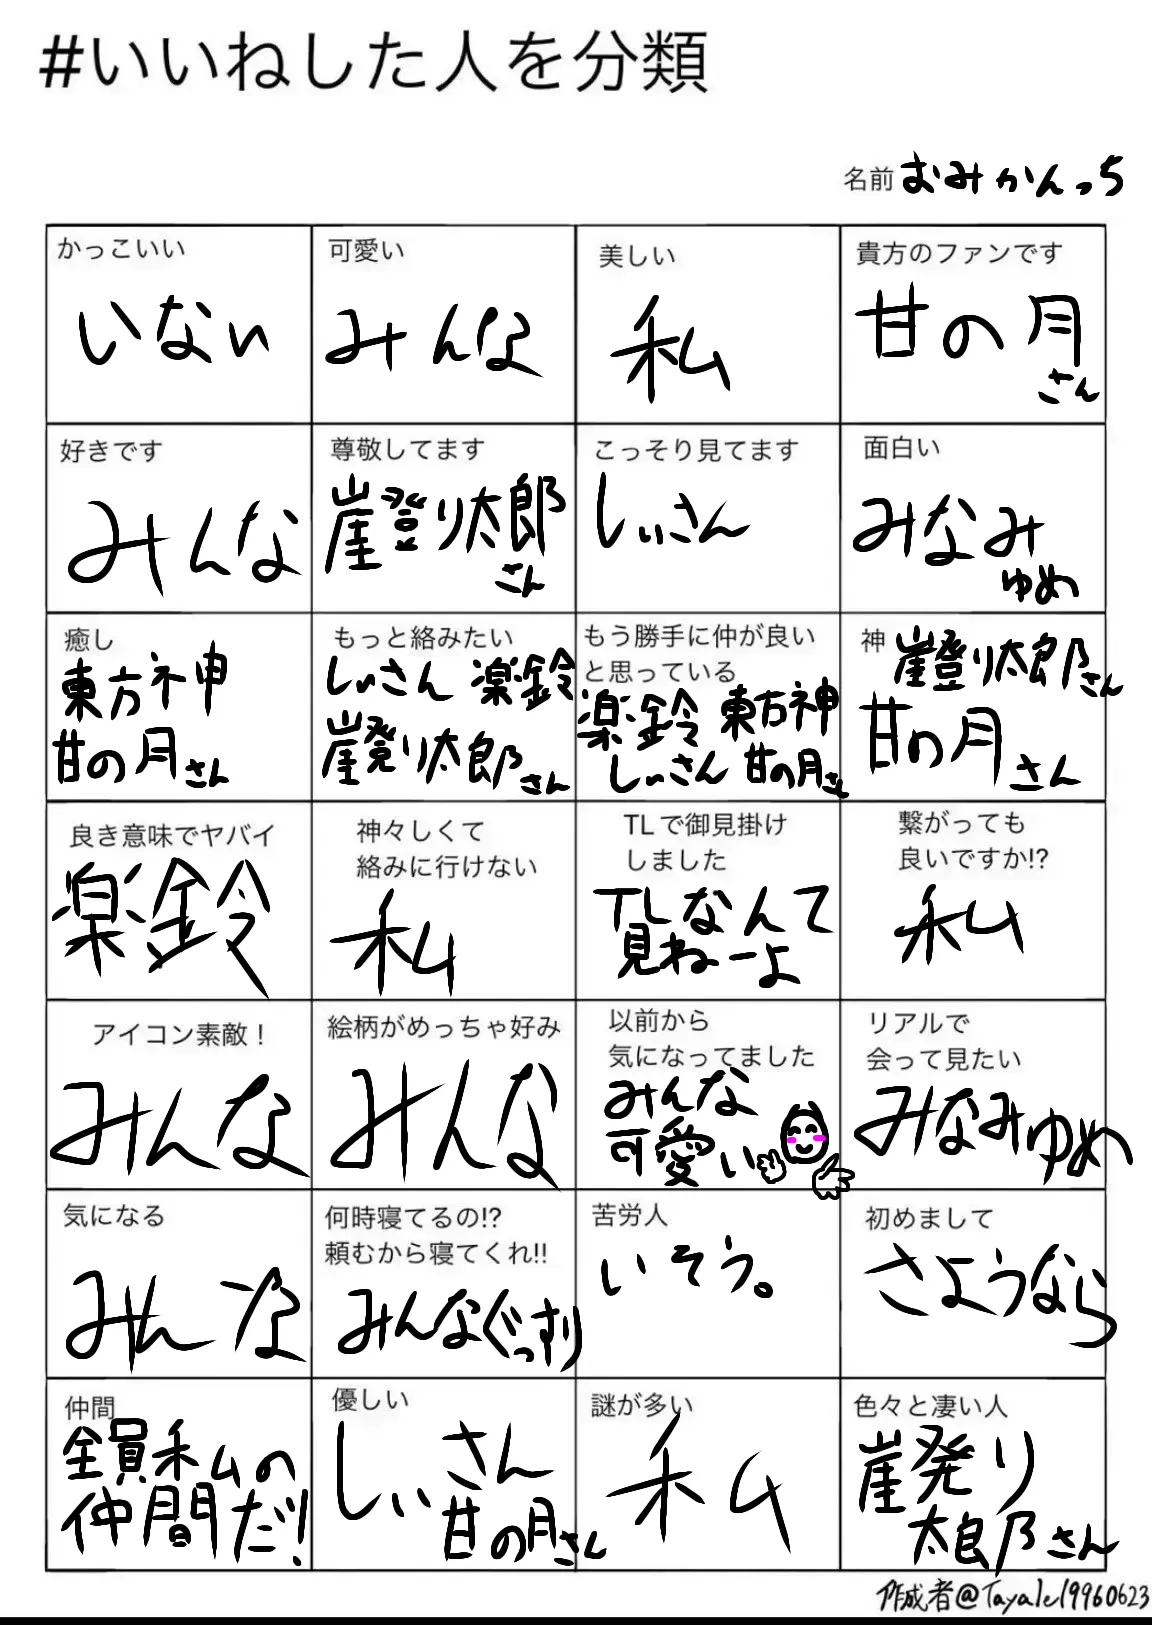 #いいねした人を分類
名前 おみかんっち
かっこいい
いない
可愛い
みんな
美しい
私
貴方のファンです
甘の月
さん
好きです
みんな
尊敬してます
崖登り太郎
さん
こっそり見てます
しぃさん
面白い
みなみ
ゆめ
癒し
東方神
甘の月さん
もっと絡みたい
しぃさん 楽鈴
崖登り太郎さん
もう勝手に仲が良い
と思っている
楽鈴 東方神
しぃさん 甘の月さん
神 崖登り太郎さん
甘の月さん
良き意味でヤバイ
楽鈴
神々しくて
絡みに行けない
私
TLで御見掛け
しました
TLなんて
見ねーよ
繋がっても
良いですか!?
私
アイコン素敵!
みんな
絵柄がめっちゃ好み
みんな
以前から
気になってました
みんな
可愛い
リアルで
会って見たい
みなみゆめ
気になる
みんな
何時寝てるの!?
頼むから寝てくれ!!
みんなぐっすり
苦労人
いそう。
初めまして
さようなら
仲間
全員私の
仲間だ!
優しい
しぃさん
甘の月さん
謎が多い
私
色々と凄い人
崖発り
太郎さん
作成者@Tayale19960623